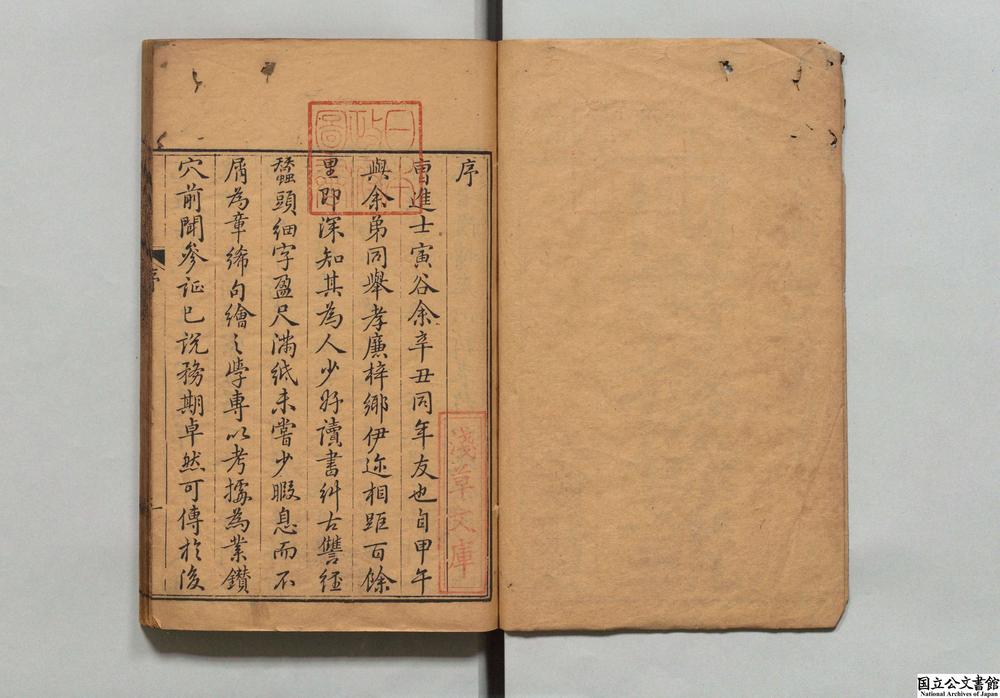 序
曹進士寅谷余辛丑同年友也自甲午
與余弟同舉孝廉梓鄉伊迩相距百餘
里即深知其為人少好讀書糾古讐經
蠶頭細字盈尺滿紙未嘗少暇息而不
屑為章絺句繪之學專以考據為業鑽
穴前聞參证已説務期卓然可傳於後
序
一
日本
政
圖
淺草文庫
国立公文書館
National Archives of Japan